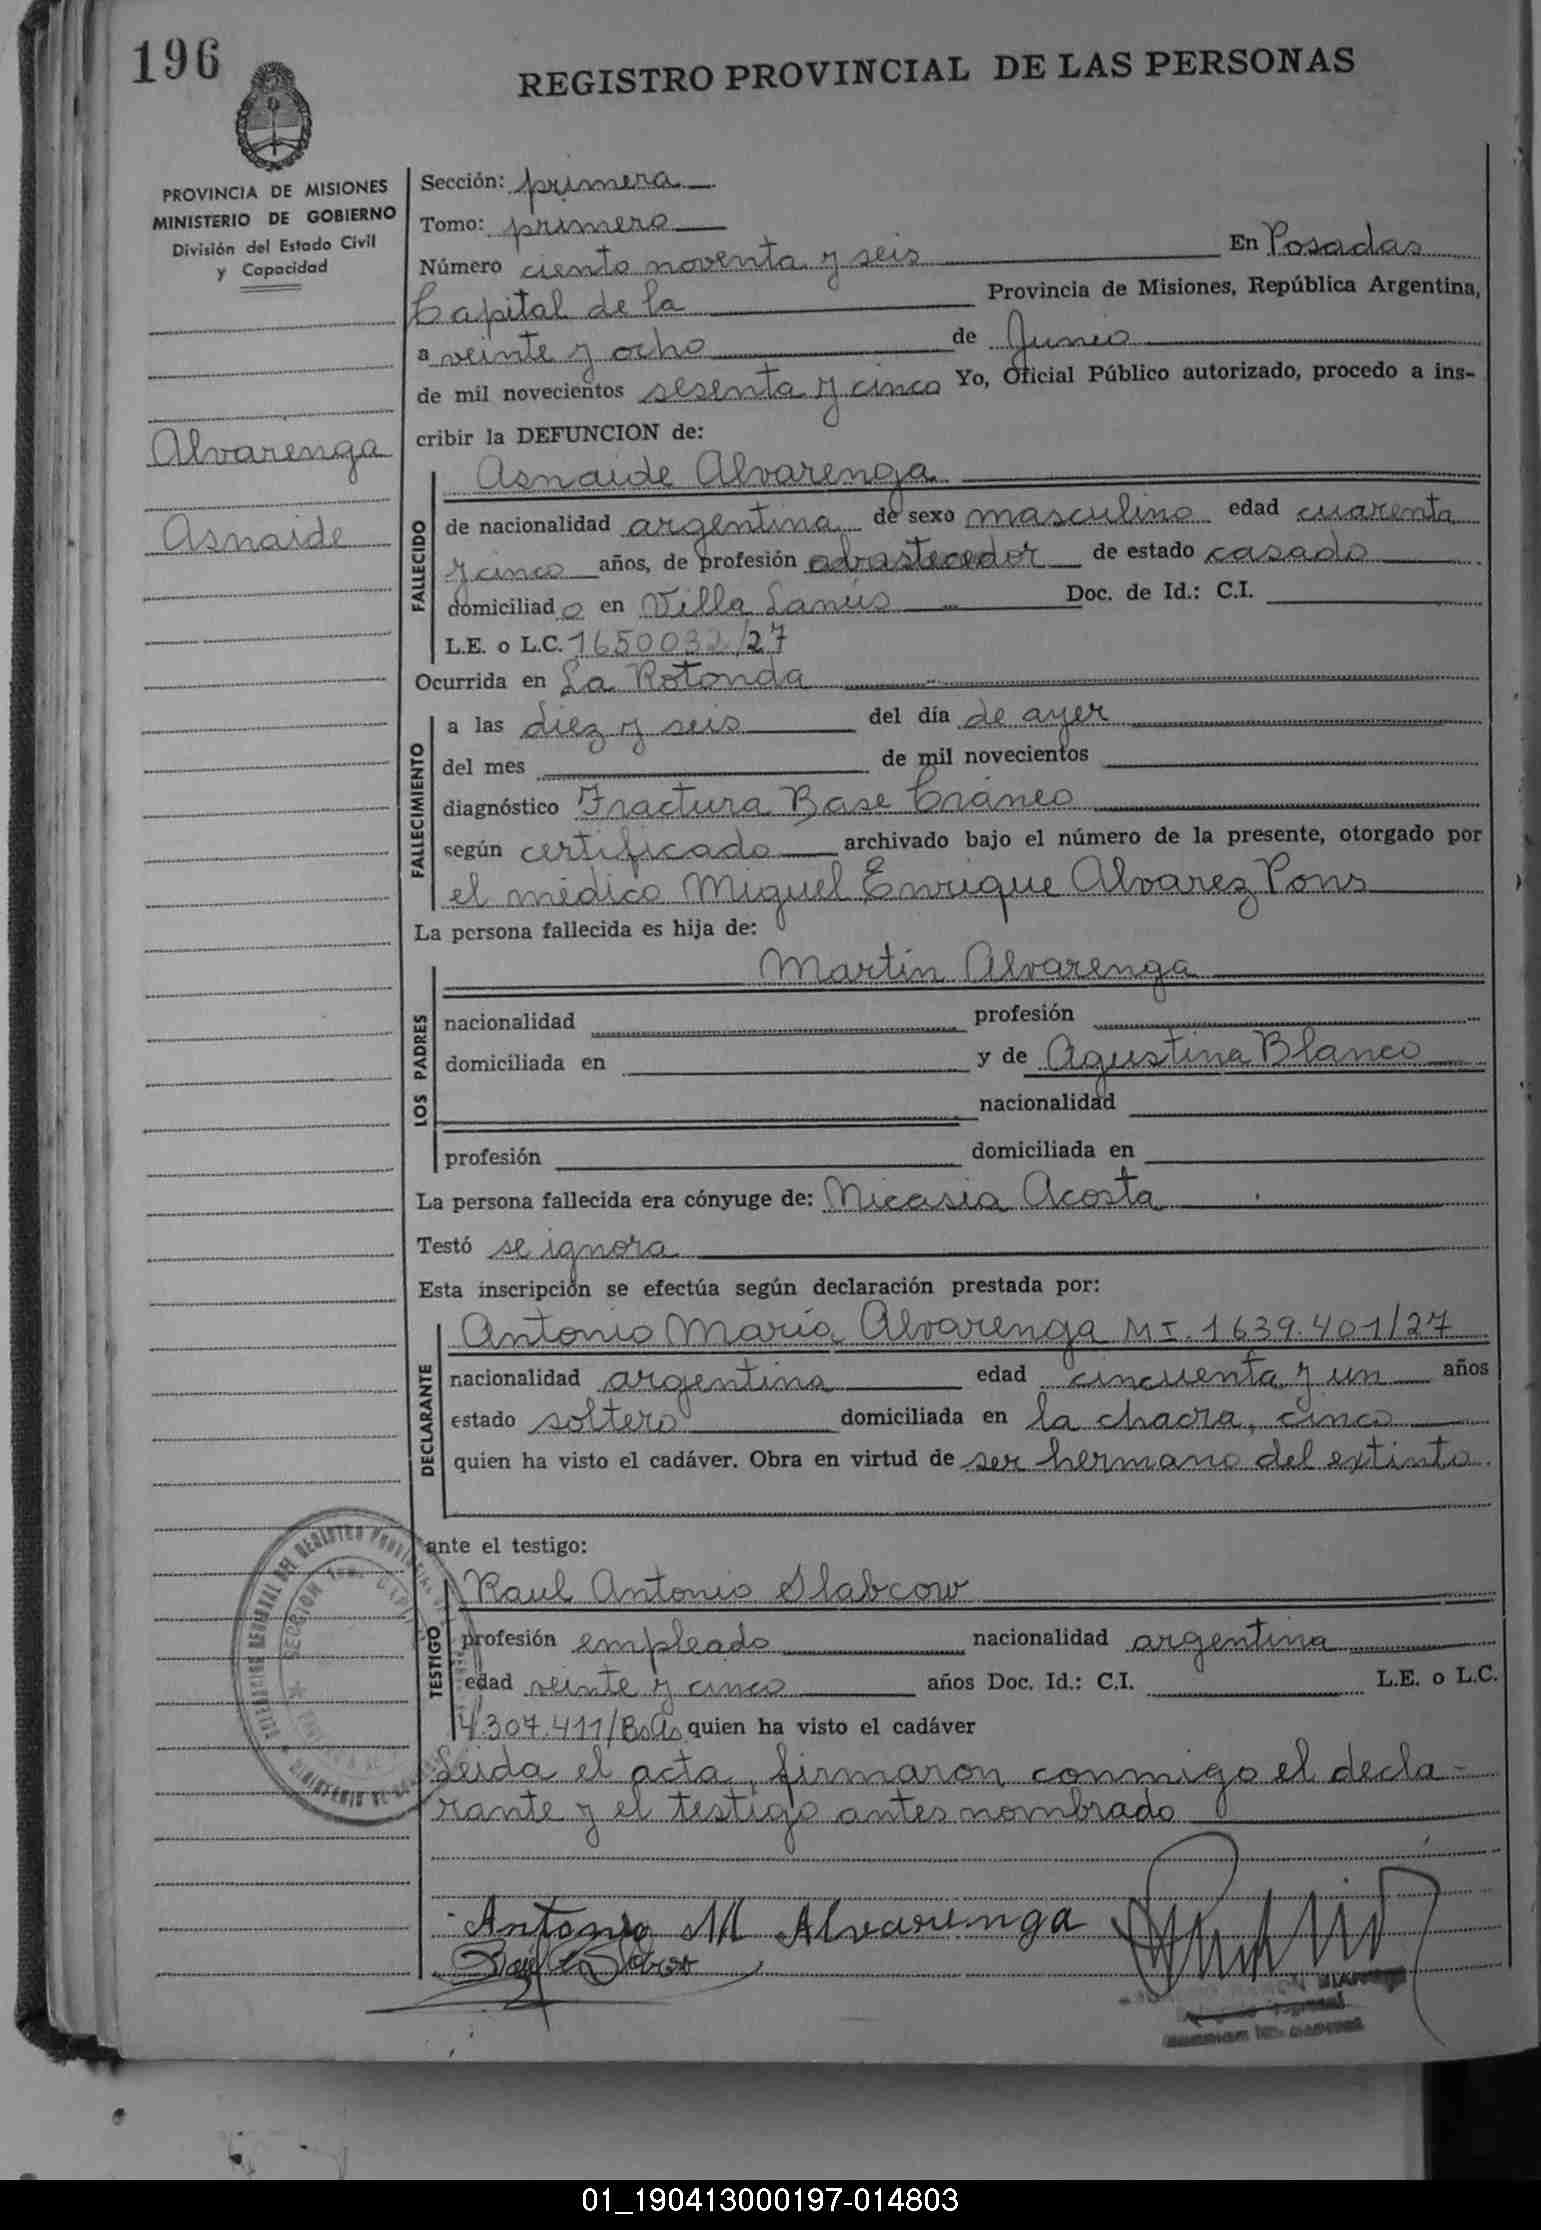 196
REGISTRO PROVINCIAL DE LAS PERSONAS
PROVINCIA DE MISIONES
MINISTERIO DE GOBIERNO
División del Estado Civil
y Capacidad
Alvarenga
Asnaide
Sección: primera
Tomo: primero
Número ciento noventa y seis En Posadas
Capital de la Provincia de Misiones, República Argentina,
a veinte y ocho de Junio
de mil novecientos sesenta y cinco Yo, Oficial Público autorizado, procedo a ins-
cribir la DEFUNCION de:
FALLECIDO
Asnaide Alvarenga
de nacionalidad argentina de sexo masculino edad cuarenta
y cinco años, de profesión abastecedor de estado casado
domiciliado en Villa Lanús Doc. de Id.: C.I.
L.E. o L.C. 1650032/27
Ocurrida en La Rotonda
FALLECIMIENTO
a las diez y seis del día de ayer
del mes de mil novecientos
diagnóstico Fractura Base Cráneo
según certificado archivado bajo el número de la presente, otorgado por
el médico Miguel Enrique Alvarez Pons
La persona fallecida es hija de:
LOS PADRES
Martín Alvarenga
nacionalidad profesión
domiciliada en y de Agustina Blanco
nacionalidad
profesión domiciliada en
La persona fallecida era cónyuge de: Nicasia Acosta
Testó se ignora
Esta inscripción se efectúa según declaración prestada por:
DECLARANTE
Antonio María Alvarenga M I. 1639.401/27
nacionalidad argentina edad cincuenta y un años
estado soltero domiciliada en la chacra, cinco
quien ha visto el cadáver. Obra en virtud de ser hermano del extinto.
ante el testigo:
TESTIGO
Raul Antonio Slabcow
profesión empleado nacionalidad argentina
edad veinte y cinco años Doc. Id.: C.I. L.E. o L.C.
4.307.411/BsAs quien ha visto el cadáver
Leida el acta, firmaron conmigo el decla-
rante y el testigo antes nombrado
Antonio M Alvarenga
01_190413000197-014803